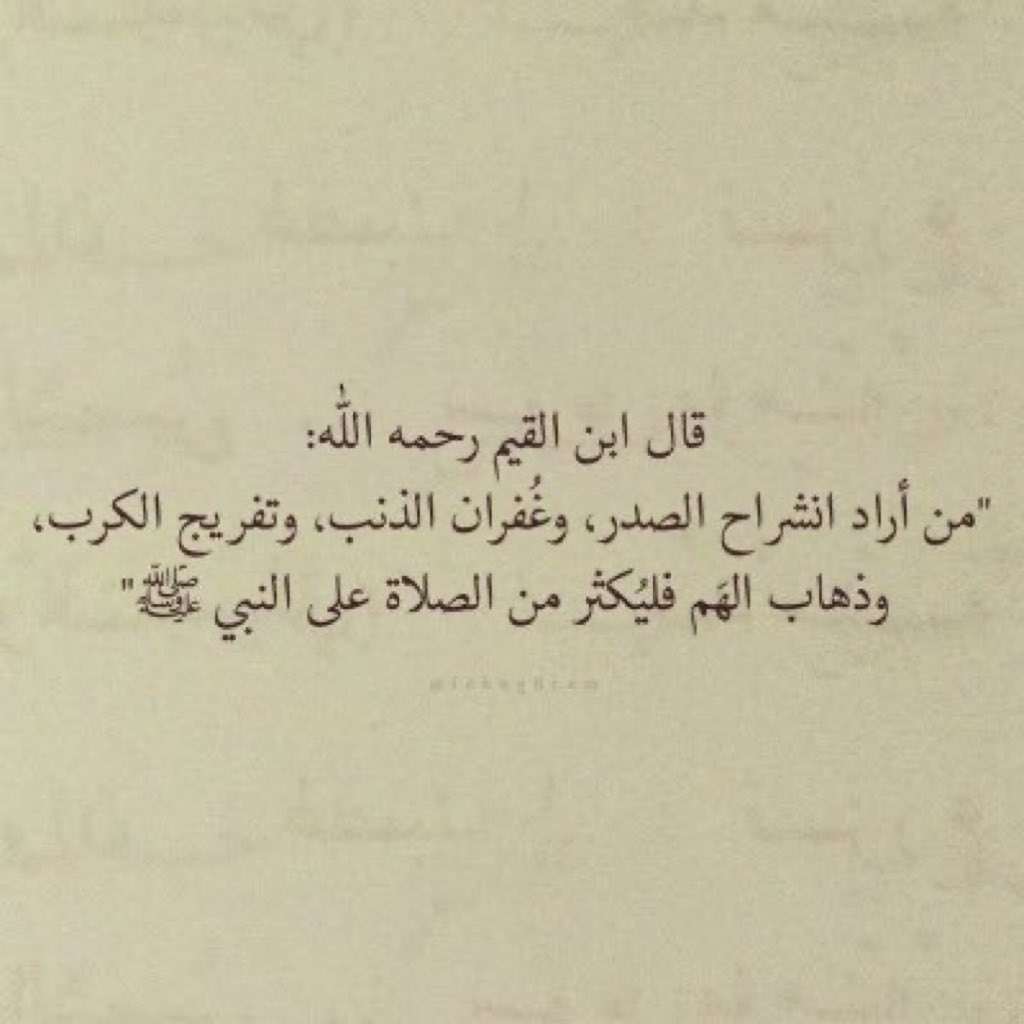 قال ابن القيم رحمه الله:
"من أراد انشراح الصدر، وغُفران الذنب، وتفريج الكرب،
وذهاب الهَم فليُكثر من الصلاة على النبي ﷺ"